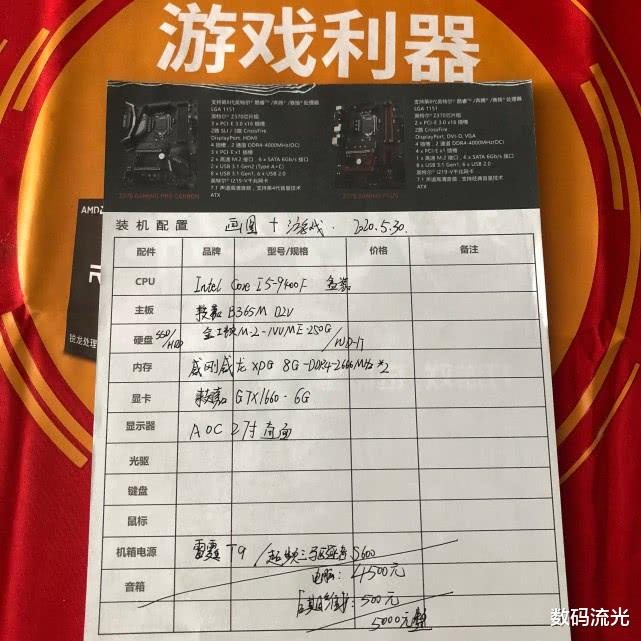 游戏利器
支持第8代英特尔® 酷睿™ /奔腾® /赛扬® 处理器
LGA 1151
英特尔® Z370芯片组
3 x PCI-E 3.0 x16 插槽
2路 SLI / 3路 CrossFire
DisplayPort, HDMI
4 插槽，2 通道 DDR4-4000MHz(OC)
3 x PCI-E x1 插槽
2 x 高速 M.2 接口，6 x SATA 6Gb/s 接口
2 x USB 3.1 Gen2 (Type A+C)
8 x USB 3.1 Gen1, 6 x USB 2.0
英特尔® I219-V千兆网卡
ATX
Z370 GAMING PRO CARBON
支持第8代英特尔® 酷睿™ /奔腾® /赛扬® 处理器
LGA 1151
英特尔® Z370芯片组
2 x PCI-E 3.0 x16 插槽
2路 CrossFire
DisplayPort, DVI-D, VGA
4 插槽，2 通道 DDR4-4000MHz(OC)
4 x PCI-E x1 插槽
1 x 高速 M.2 接口，6 x SATA 6Gb/s 接口
英特尔® I219-V千兆网卡
ATX
Z370 GAMING PLUS
AMD
锐龙处理
装机配置 画图 + 游戏. 2020.5.30.
配件 品牌 型号/规格 价格 备注
CPU Intel Core I5-9400F 盒装
主板 B365M D2V
硬盘 SSD/HDD M-2-NVME-250G /WD-1T
内存 威刚威龙 XPG 8G-DDR4-2666MHz *2
显卡 GTX1660-6G
显示器 AOC 27寸 曲面
光驱
键盘
鼠标
机箱电源 雷霆 T9 / 超频三 S600
音箱 电脑: 4500元
500元
5000元整
数码流光